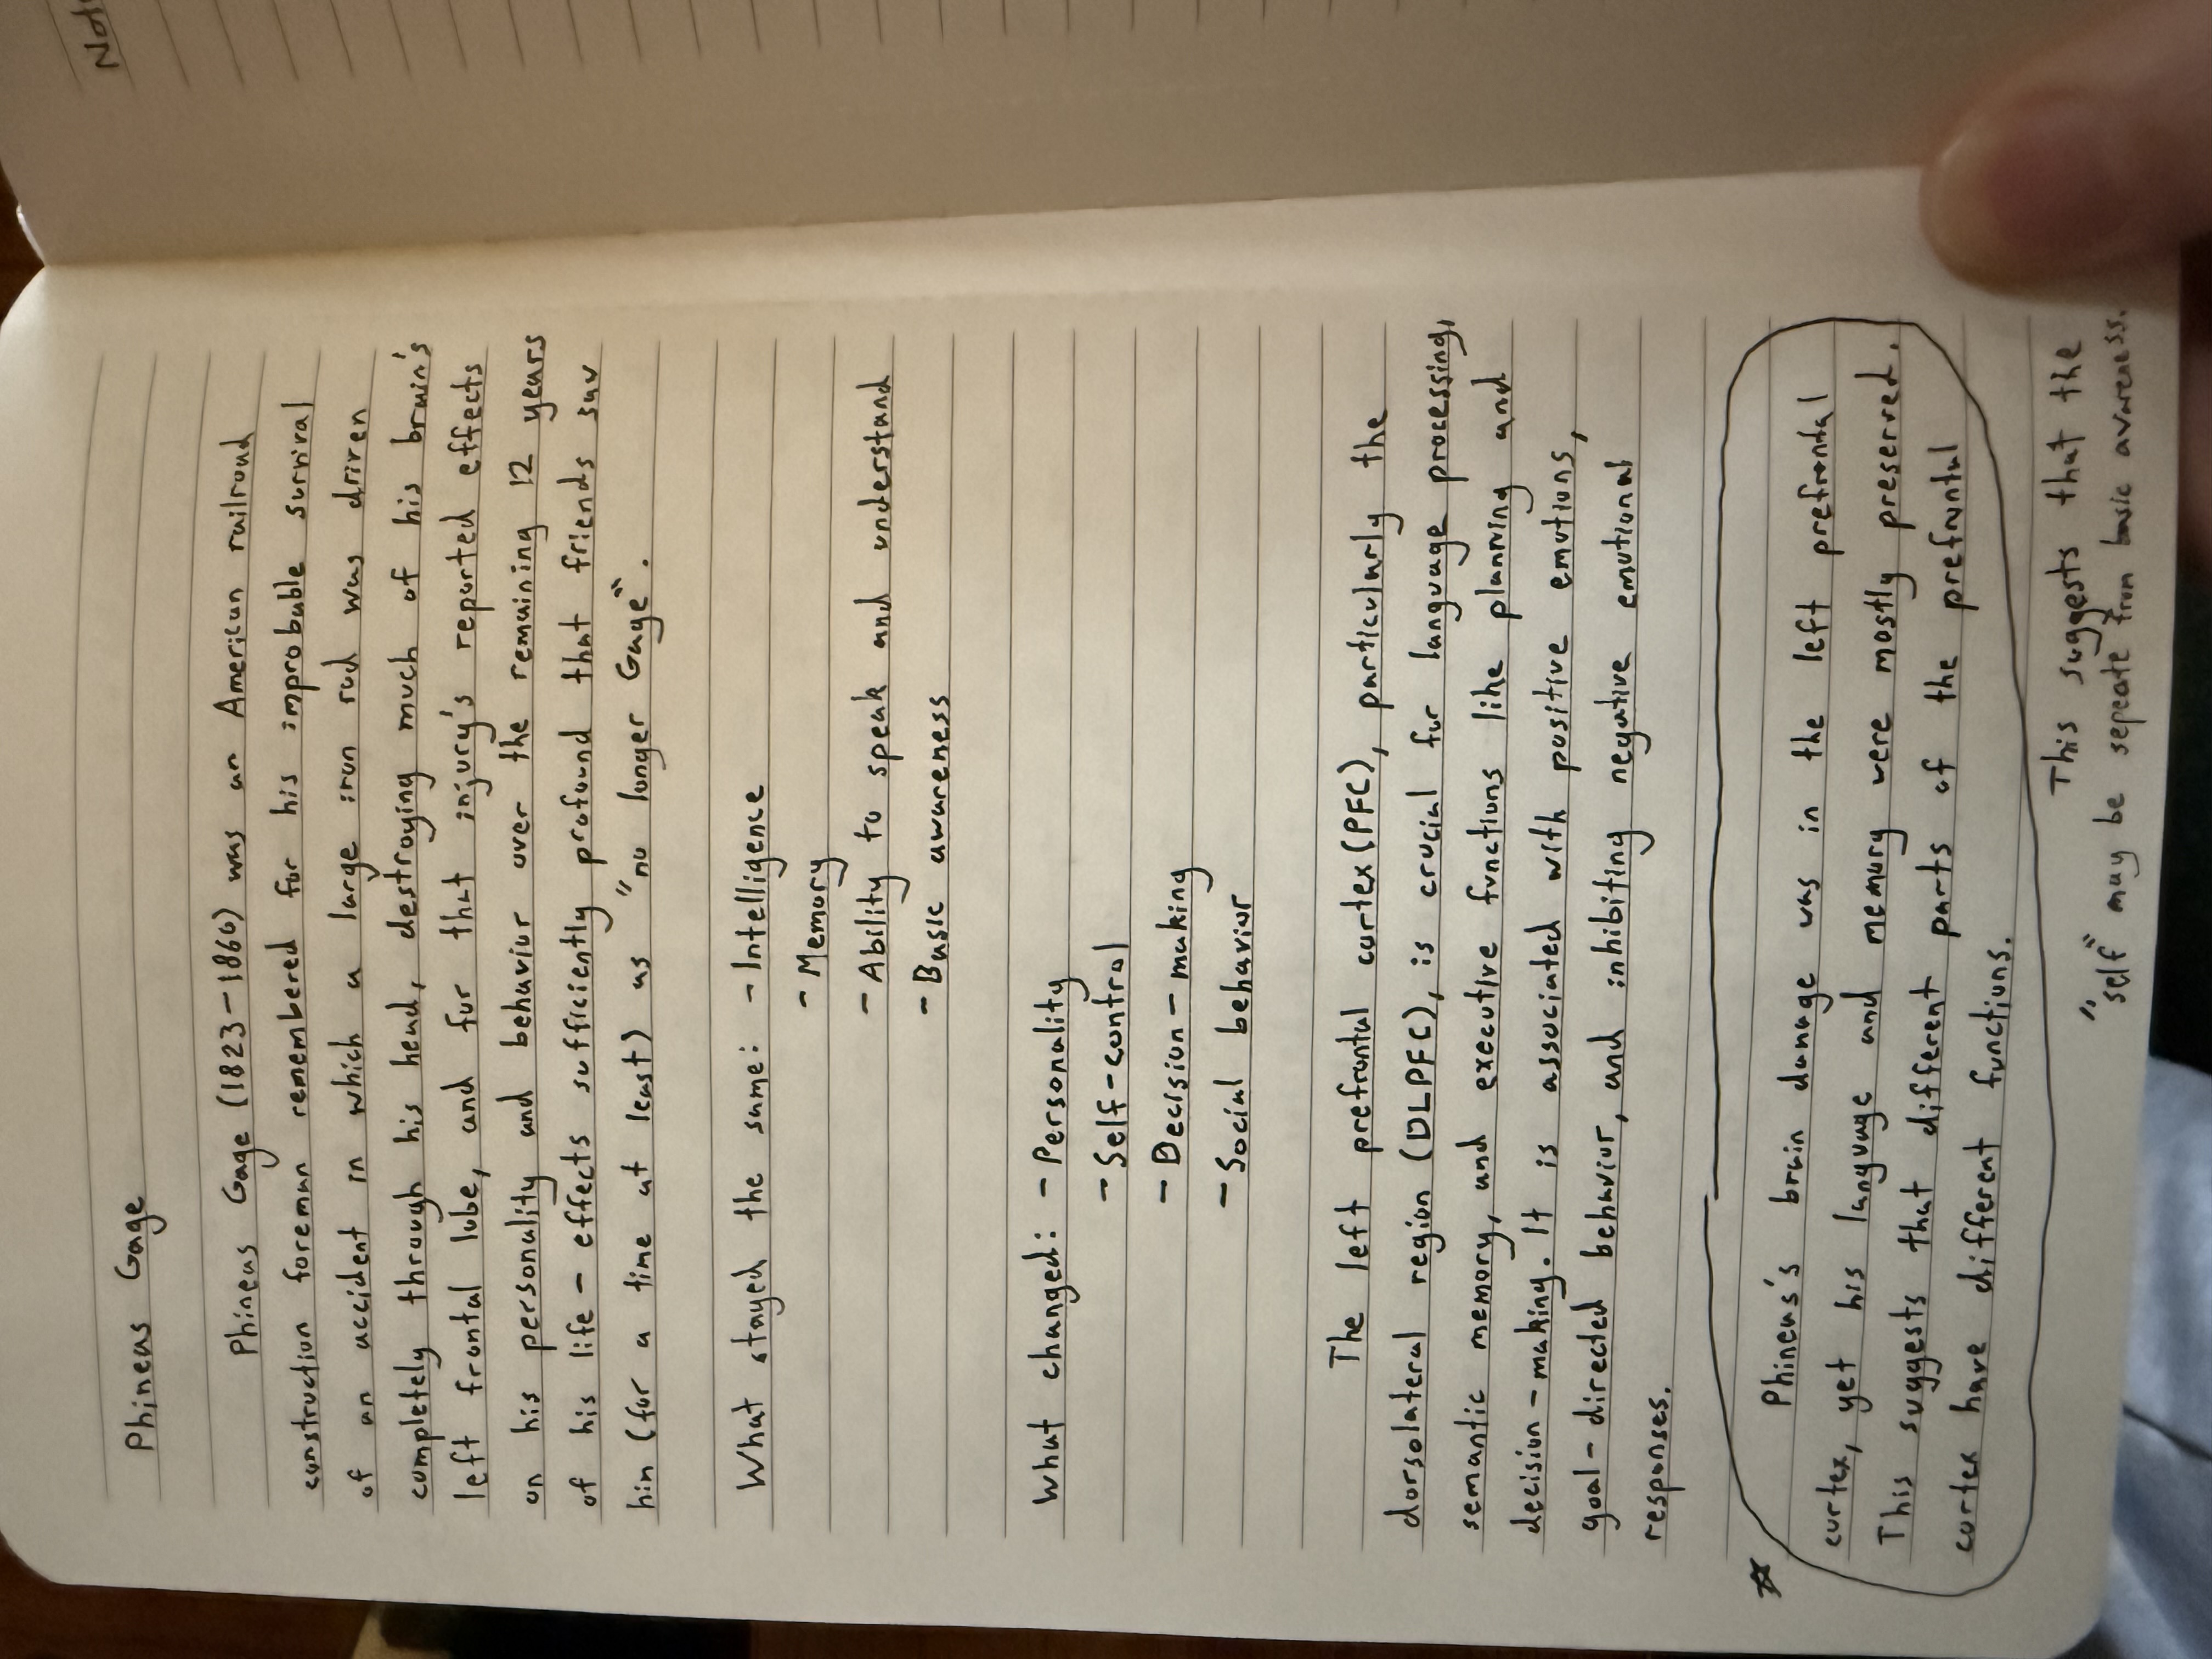 Phineas Gage
Phineas Gage (1823-1860) was an American railroad
construction foreman remembered for his improbable survival
of an accident in which a large iron rod was driven
completely through his head, destroying much of his brain's
left frontal lobe, and for that injury's reported effects
on his personality and behavior over the remaining 12 years
of his life - effects sufficiently profound that friends saw
him (for a time at least) as "no longer Gage".
What stayed the same: - Intelligence
- Memory
- Ability to speak and understand
- Basic awareness
What changed: - Personality
- Self-control
- Decision-making
- Social behavior
The left prefrontal cortex (PFC), particularly the
dorsolateral region (DLPFC), is crucial for language processing,
semantic memory, and executive functions like planning and
decision-making. It is associated with positive emotions,
goal-directed behavior, and inhibiting negative emotional
responses.
Phineas's brain damage was in the left prefrontal
cortex, yet his language and memory were mostly preserved.
This suggests that different parts of the prefrontal
cortex have different functions.
This suggests that the
"self" may be sepeate from basic awareness.